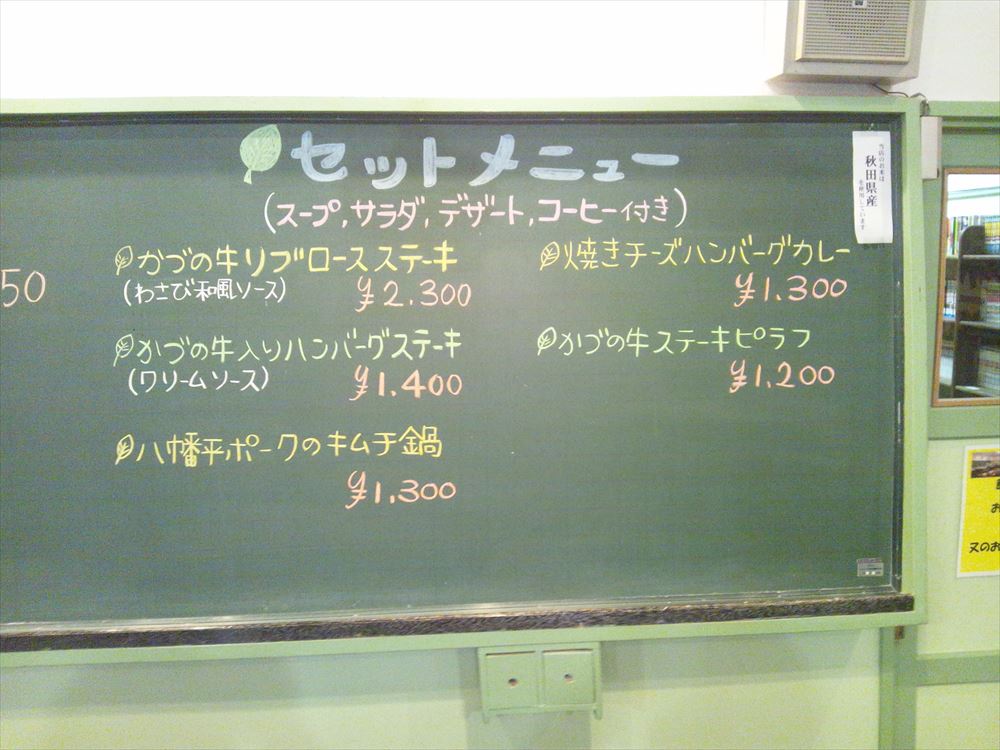 セットメニュー
(スープ,サラダ,デザート,コーヒー付き)
かづの牛リブロースステーキ
(わさび和風ソース)
¥2.300
かづの牛入りハンバーグステーキ
(クリームソース)
¥1.400
八幡平ポークのキムチ鍋
¥1.300
焼きチーズハンバーグカレー
¥1.300
かづの牛ステーキピラフ
¥1.200
50
当店のお米は
秋田県産
を使用しています
又のお